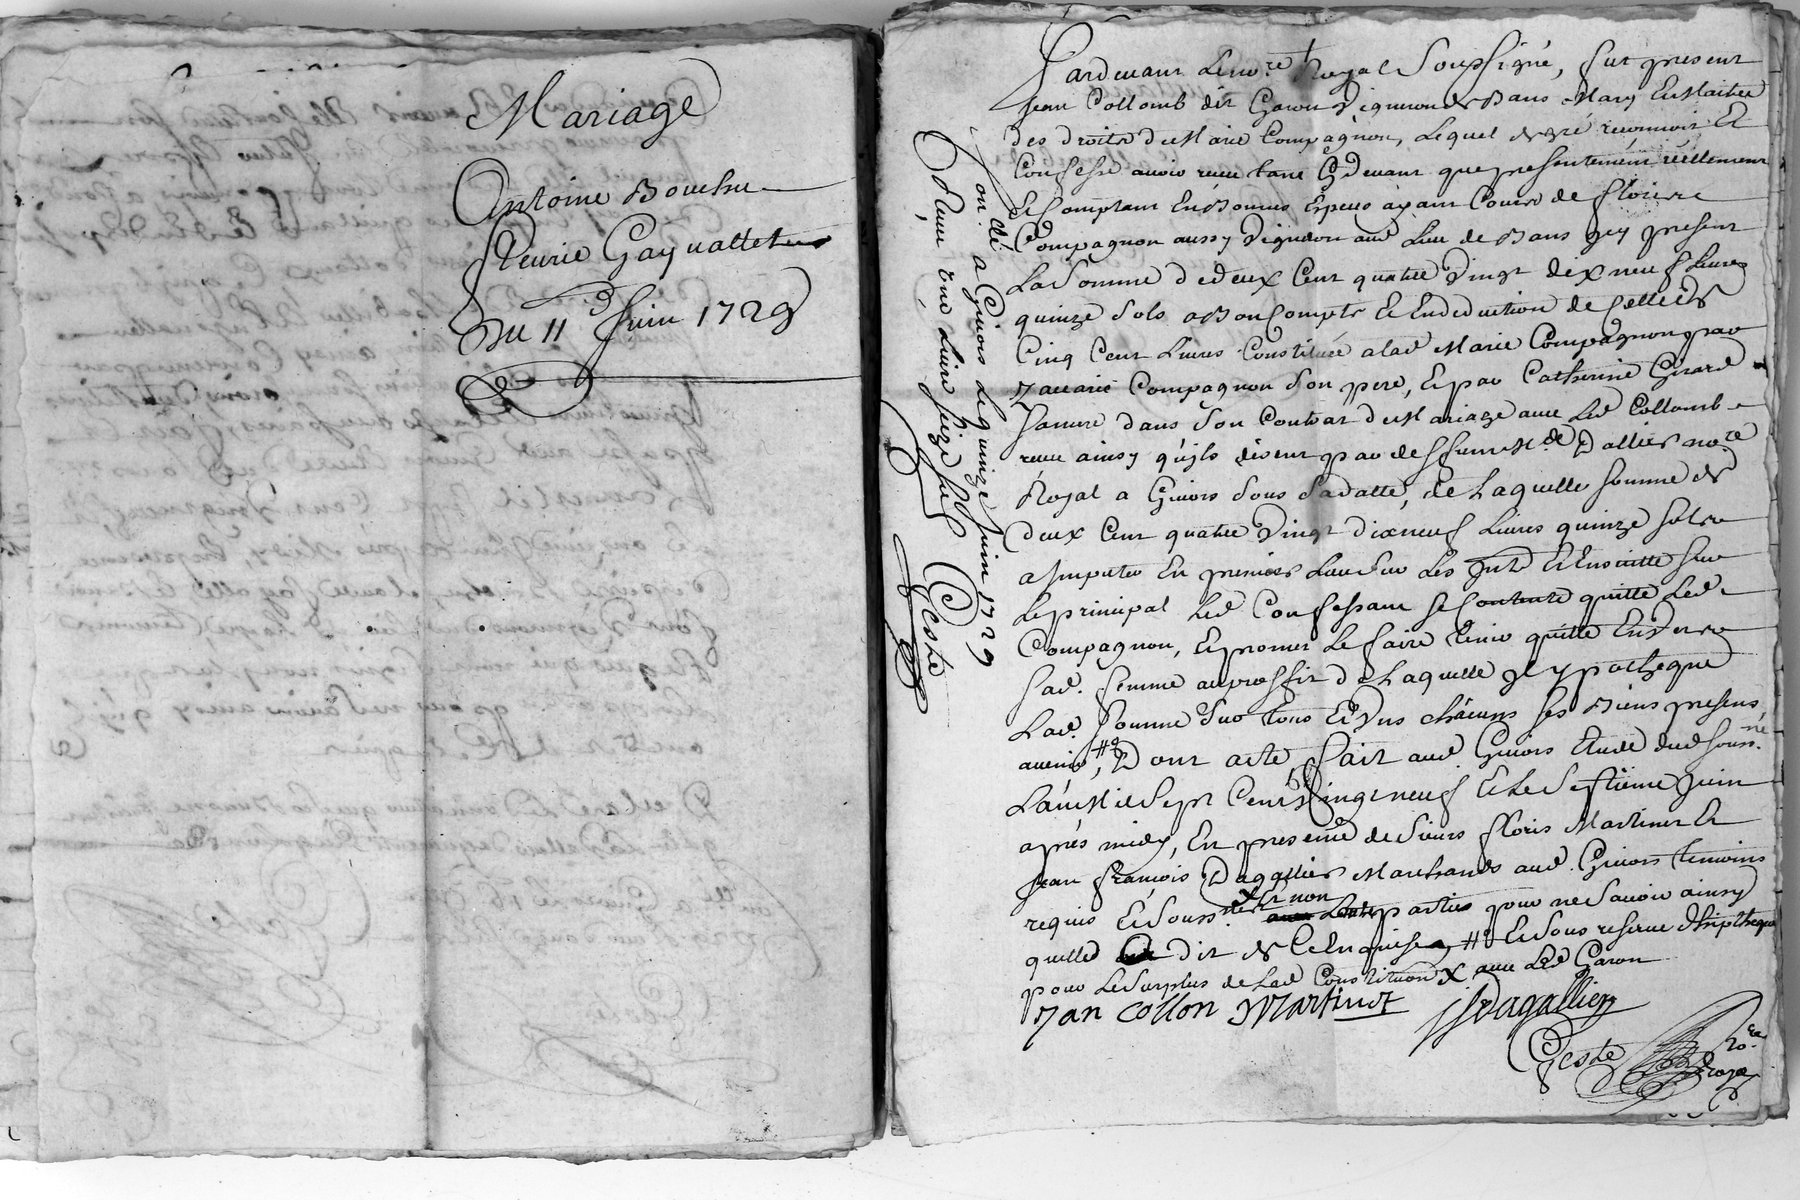 Mariage
Antoine Bouchu
Fleurie Gayvallet
Du 11e Juin 1729
Pardevant Le nore Royal Soussigné, fut present
Jean Collomb dit Garon Vigneron de Bans Mary Et Maitre
des droits de Marie Compagnon, Lequel de gré reconnoit Et
Confesse avoir receu tant Cy devant que presentement réellement
Et Comptant En Bonnes Especes ayant Cours de Florie
Compagnon aussy Vigneron aud Lieu de Bans icy present
La Somme de deux Cent quatre Vingt dix neuf Livres
quinze Sols a Bon Compte Et En deduction de Celle de
Cinq Cent Livres Constituée a lad Marie Compagnon par
Compagnon Son pere, Et par Catherine Girard
Sa mere dans Son Contrat de Mariage avec Led Collomb
receu ainsy qu'ils disent par deffunt Me Dallier nore
Royal a Givors Sous Sa datte, de Laquelle Somme de
deux Cent quatre Vingt dix neuf Livres quinze Sols
a Imputer En premier Lieu Sur Les Intts Et Ensuitte Sur
Le principal Led Confessant Se Contente quitte Led
Compagnon, Et promet Le faire tenir quitte Envers
Sad. femme au proffit de Laquelle Il ypotheque
Lad. Somme Sur tous Et Uns chacuns Ses Biens presens
avenir, # Dont acte, fait aud Givors Etude dud Souss.né
L'an Mil Sept Cent Vingt neuf Et Le Septième Juin
après midy, En presence de Sieurs Floris Martinot Et
Jean François Dagallier Marchands aud Givors temoins
requis Et Soussnés Et non Les parties pour ne Savoir ainsy
quelle dit de Ce Enquise, # Et Sous reserve d'hipotheque
pour Le Surplus de Lad Constitution X avec Led Garon
Jan Collon Martinot JF Dagallier
Geste No.re Royal
Con.lé a Givors Le quinze Juin 1729
Receu une Livre Seize Sols Geste